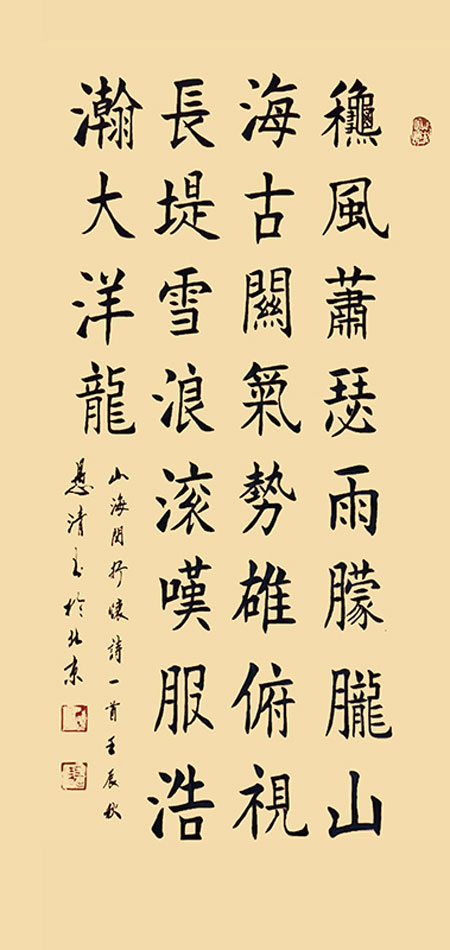 龝風蕭瑟雨朦朧山
海古關氣勢雄俯視
長堤雪浪滚嘆服浩
瀚大洋龍
山海関抒懷詩一首壬辰秋
清於北京